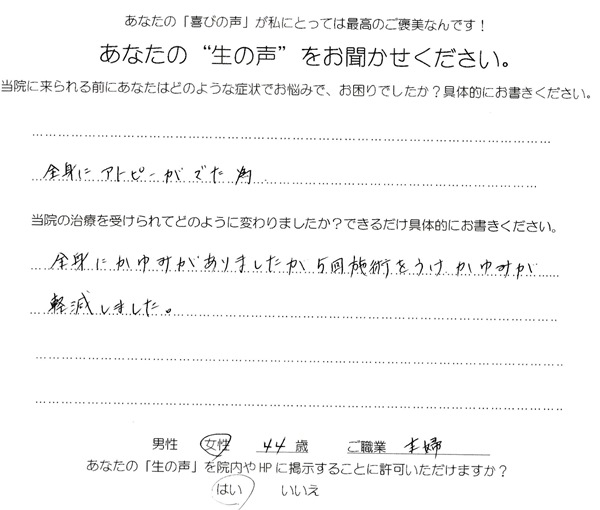 あなたの「喜びの声」が私にとっては最高のご褒美なんです！
あなたの“生の声”をお聞かせください。
当院に来られる前にあなたはどのような症状でお悩みで、お困りでしたか？具体的にお書きください。
全身に アトピーが でた 為
当院の治療を受けられてどのように変わりましたか？できるだけ具体的にお書きください。
全身にかゆみがありましたが 5回施術をうけ かゆみが
軽減しました。
男性 女性 44 歳 ご職業 主婦
あなたの「生の声」を院内やHPに掲示することに許可いただけますか？
はい いいえ